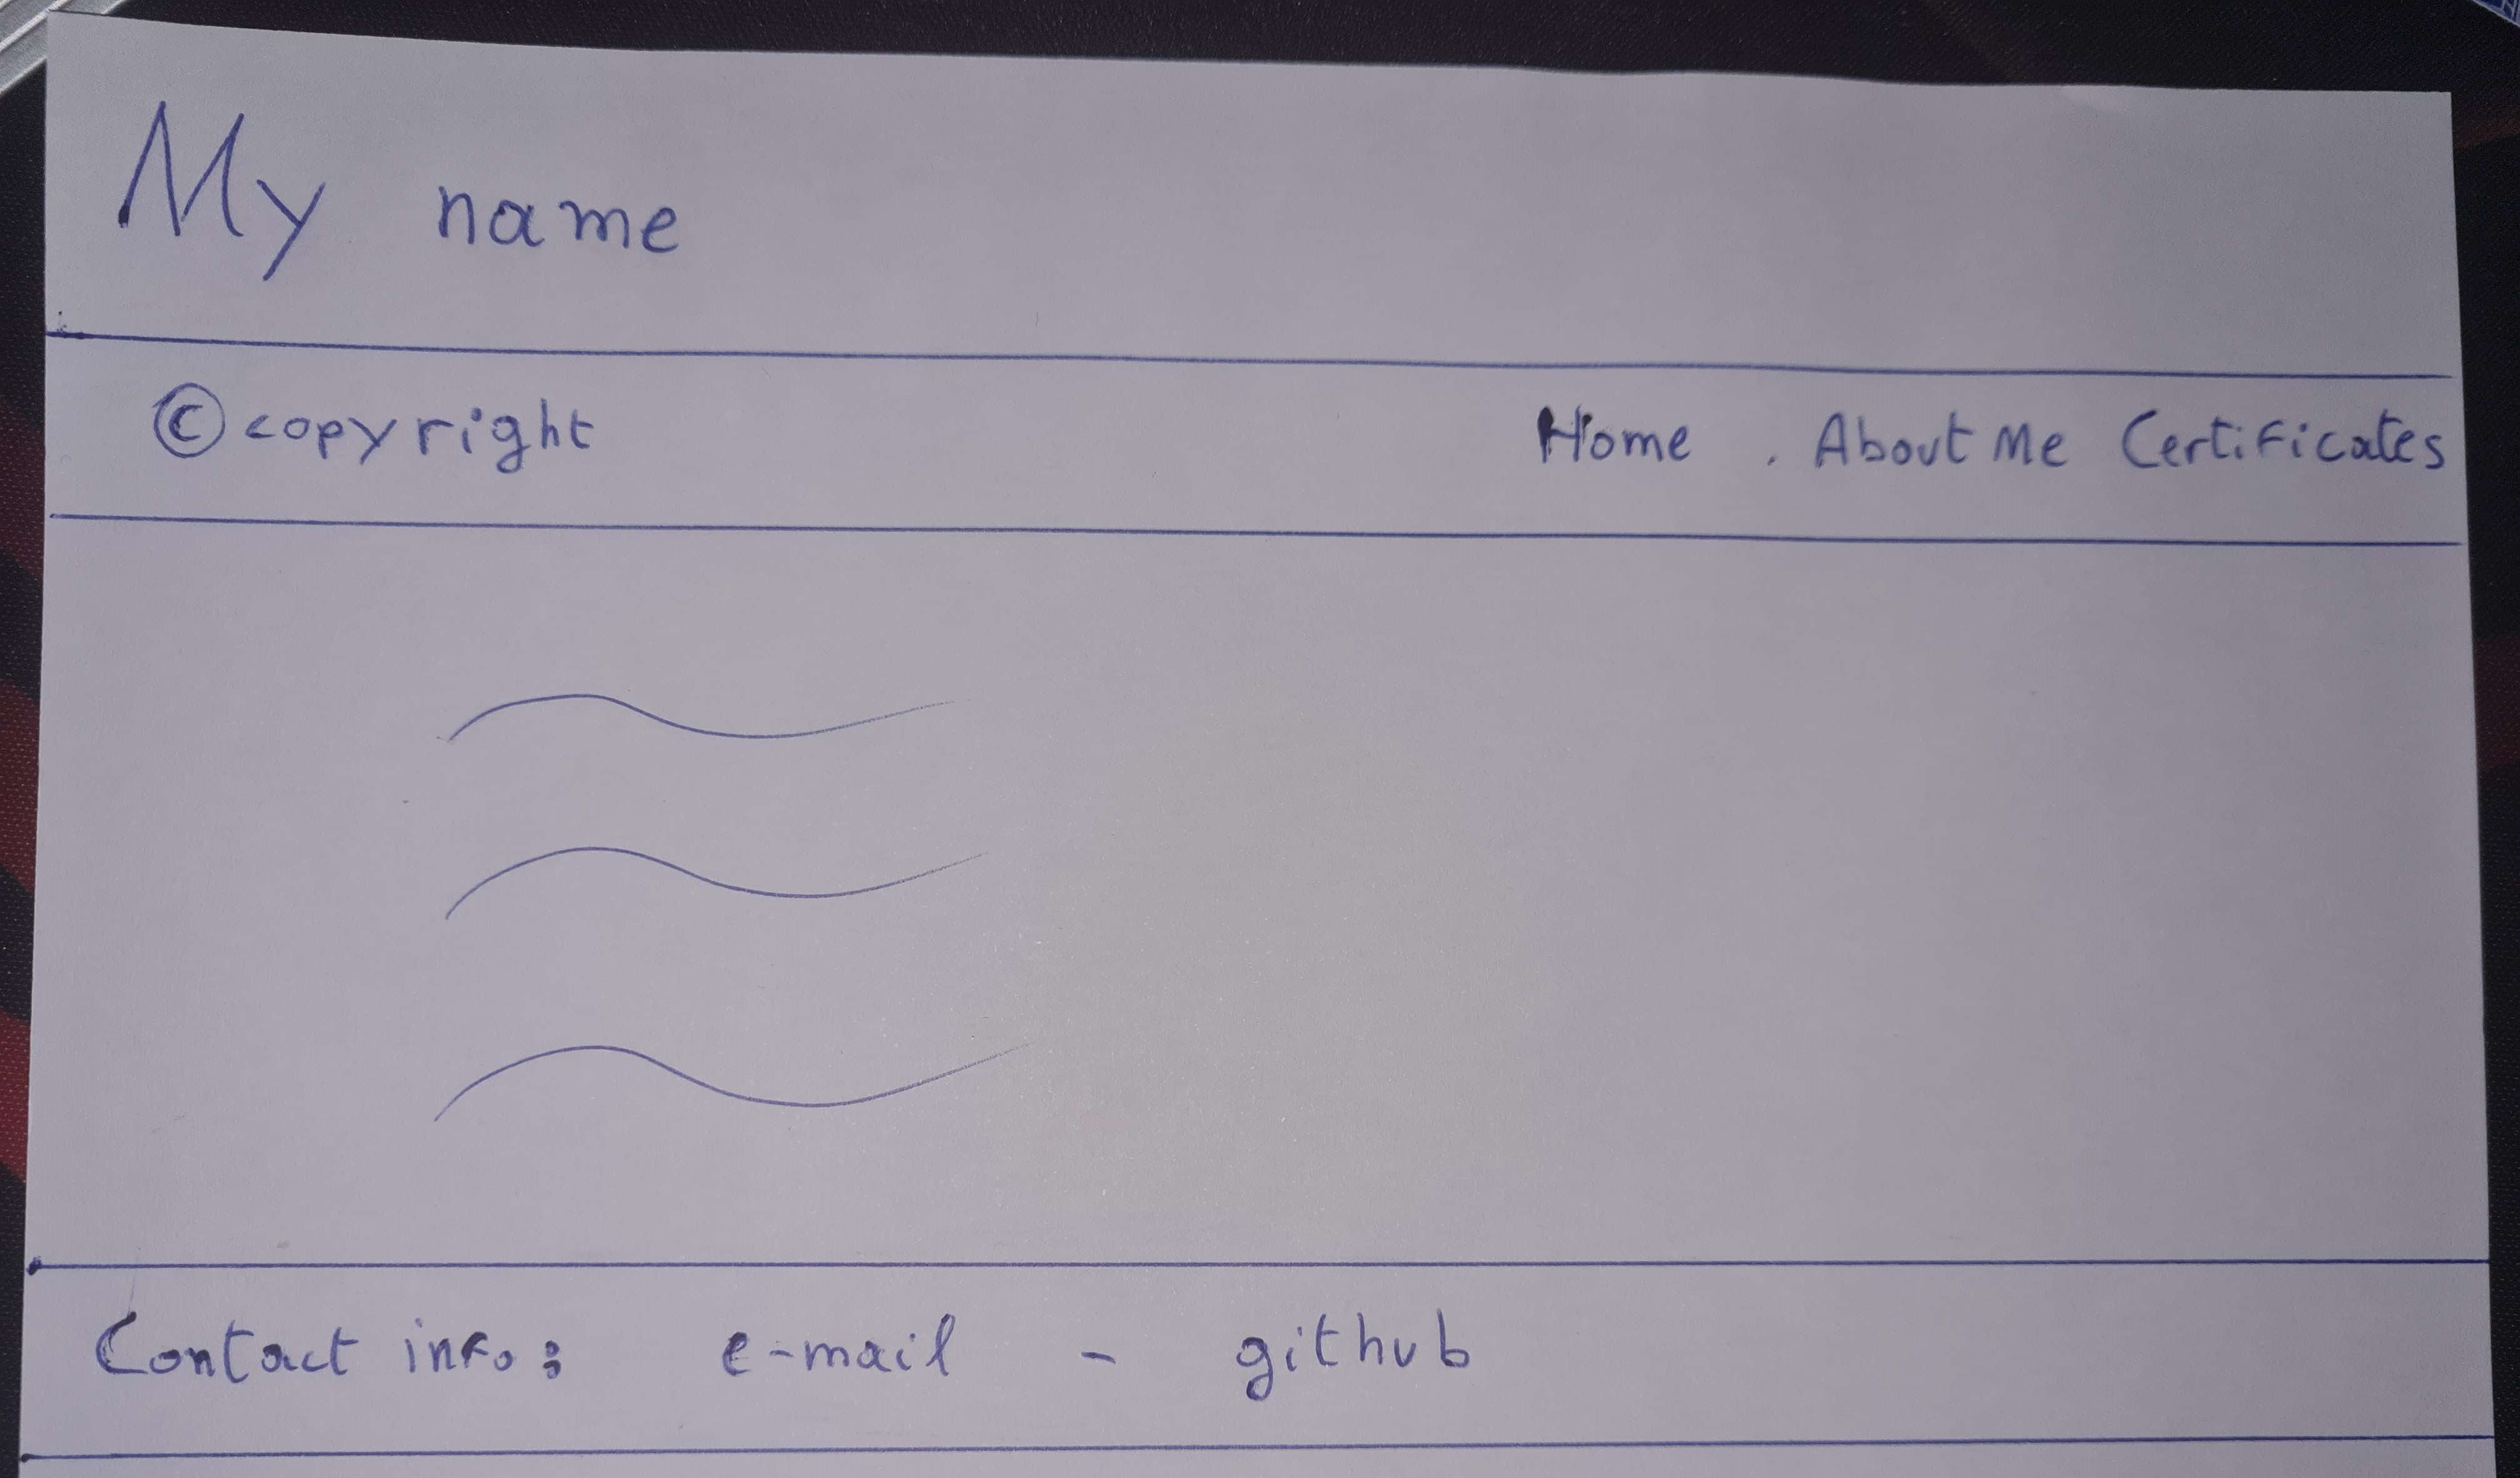 My name
© copyright Home . About Me Certificates
Contact info: e-mail - github